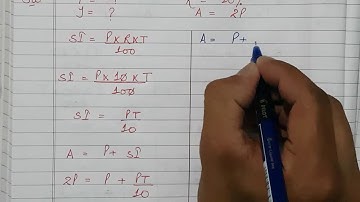 T = ?
A = 2P
SI = P x R x T
100
SI = P x 10 x T
100
SI = PT
10
A = P + SI
2P = P + PT
10
A = P +